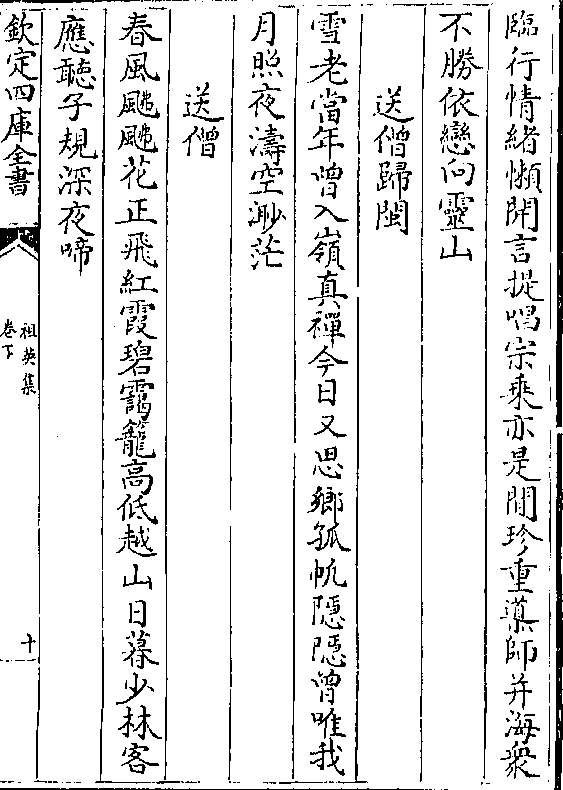 臨行情緒懶開言提唱宗乘亦是閒珍重藥師并海衆
不勝依戀向靈山
送僧歸閩
雪老當年曽入嶺真禪今日又思鄉孤帆隱隱曽唯我
月照夜濤空渺茫
送僧
春風飈飈花正飛紅霞碧靄籠高低越山日暮少林客
應聽子規深夜啼
欽定四庫全書
祖英集
卷下
十